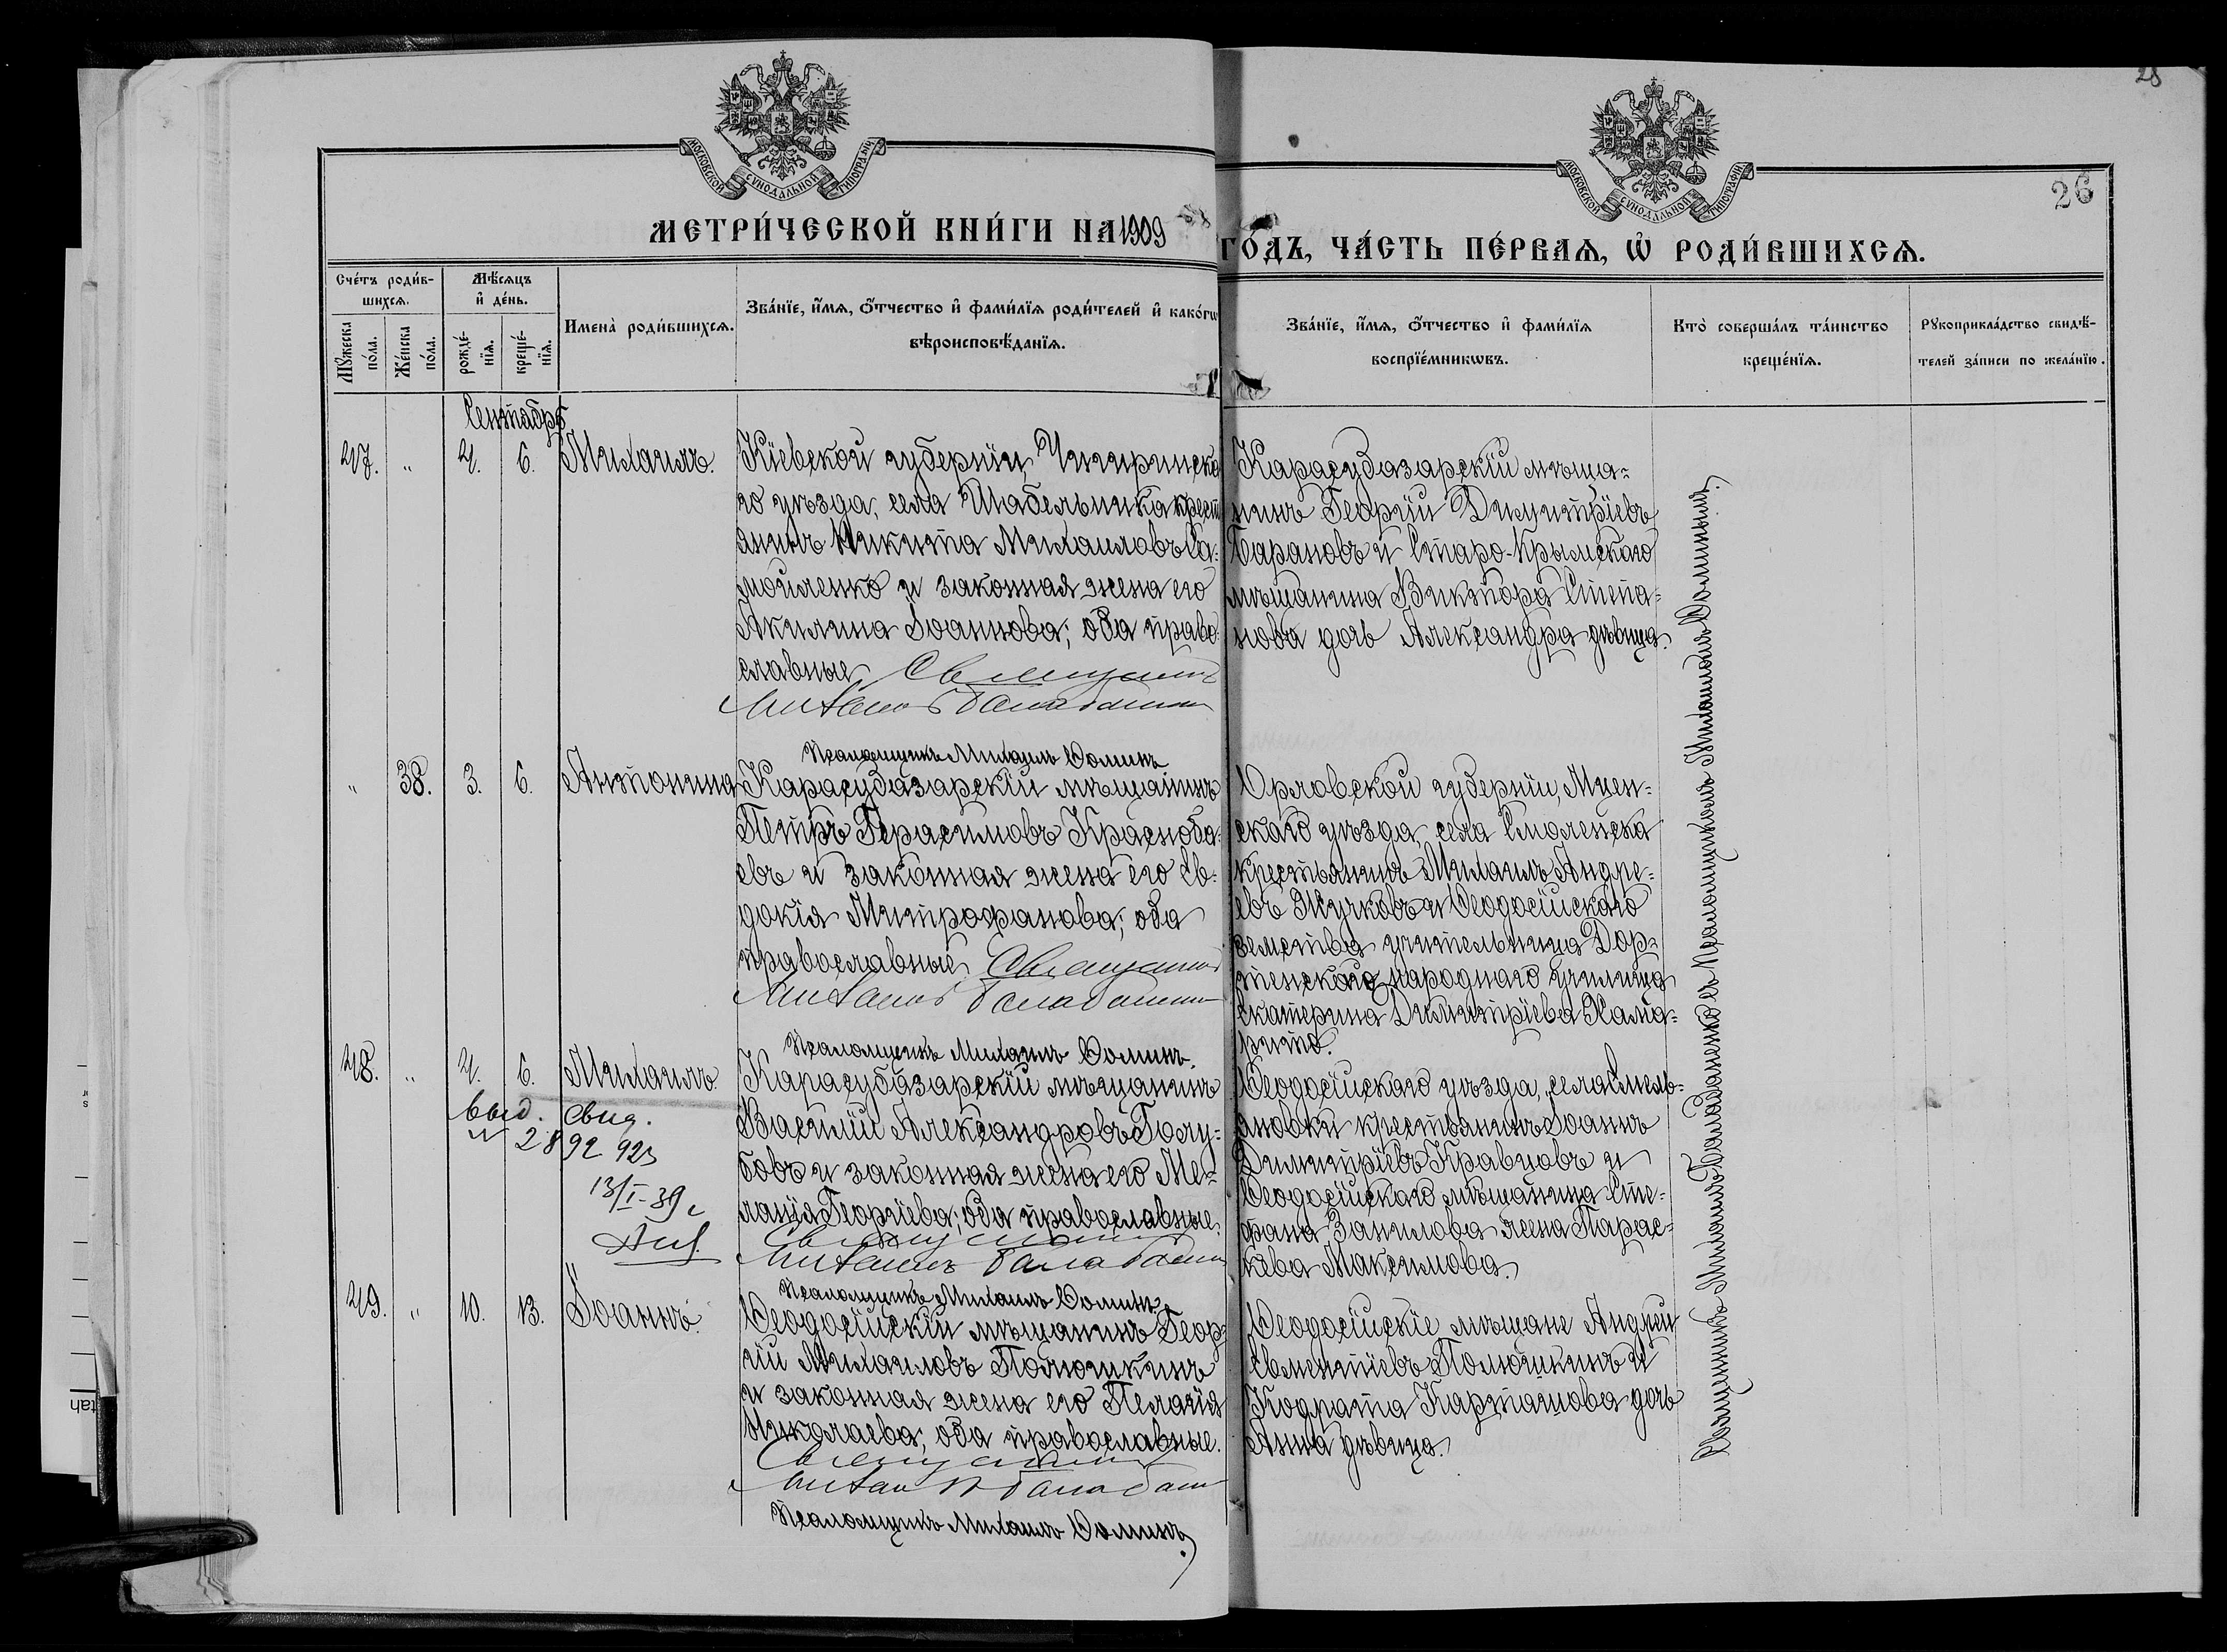 28
26
МОСКОВСКОЙ СѴНОДАЛЬНОЙ ТИПОГРАФІИ
МОСКОВСКОЙ СѴНОДАЛЬНОЙ ТИПОГРАФІИ
МЕТРИ́ЧЕСКОЙ КНИ́ГИ НА 1909
ГО́ДЪ, ЧА́СТЬ ПЕ́РВАЯ, Ѡ҆ РОДИ́ВШИХСЯ.
Сче́тъ роди́в-
шихся.
Мꙋ́жеска по́ла.
Же́нска по́ла.
Мѣ́сяцъ
и҆ де́нь.
рожде́-
нїѧ.
креще́-
нїѧ.
Имена̀ роди́вшихся.
Зва́нїе, и҆́мѧ, ѻ҆́тчество и҆ фами́лїѧ роди́телей и҆ како́гѡ
вѣроисповѣ́данїѧ.
Зва́нїе, и҆́мѧ, ѻ҆́тчество и҆ фами́лїѧ
воспрїе́мникѡвъ.
Кто̀ соверша́лъ та́инство
креще́нїѧ.
Рꙋкоприкла́дство свидѣ́-
телей за́писи по жела́нїю.
Сентябрь
47. " 4. 6. Михаилъ.
Кіевской губерніи, Чигиринска
го уѣзда, села Шабельника крест
янинъ Никита Михаиловъ Са-
мойленко и законная жена его
Акилина Іоаннова; оба право-
славные. Священникъ
Михаилъ Баладаненко
Псаломщикъ Михаилъ Ѳоминъ
Карасубазарскій мѣща-
нинъ Георгій Димитріевъ
Барановъ и Старо-Крымскаго
мѣщанина Виктора Степа-
нова дочь Александра дѣвица.
" 38. 3. 6. Антонина
Карасубазарскій мѣщанинъ
Петръ Герасимовъ Красноба-
евъ и законная жена его Ев-
докія Митрофанова; оба
православные. Священникъ
Михаилъ Баладаненко
Псаломщикъ Михаилъ Ѳоминъ.
Орловской губерніи, Мцен-
скаго уѣзда, села Смоленска
крестьянинъ Михаилъ Андре-
евъ Жучковъ и Ѳеодосійскаго
земства учительница Дор-
тенскаго народнаго училища
Екатерина Димитріева
48. " 4. 6. Михаилъ.
выд. свид.
№ 2892 923
13/I-39 г
Карасубазарскій мѣщанинъ
Василій Александровъ Голу-
бовъ и законная жена его Ме-
ланія Георгіева; оба православные.
Священникъ
Михаилъ Баладаненко
Псаломщикъ Михаилъ Ѳоминъ.
Ѳеодосійскаго уѣзда, села Емель-
яновки крестьянинъ Іоаннъ
Димитріевъ Кравцовъ и
Ѳеодосійскаго мѣщанина Сте-
фана Занилова жена Парас-
кева Максимова.
49. " 10. 13. Іоаннъ.
Ѳеодосійскій мѣщанинъ Геор-
гій Михаиловъ Полюшкинъ
и законная жена его Пелагія
Николаева; оба православные.
Священникъ
Михаилъ Баладаненко
Псаломщикъ Михаилъ Ѳоминъ.
Ѳеодосійскіе мѣщане Андрей
Климентіевъ Полюшкинъ и
Кодрата Карташова дочь
Анна дѣвица.
Священникъ Михаилъ Баладаненко съ Псаломщикомъ Михаиломъ Ѳоминымъ.